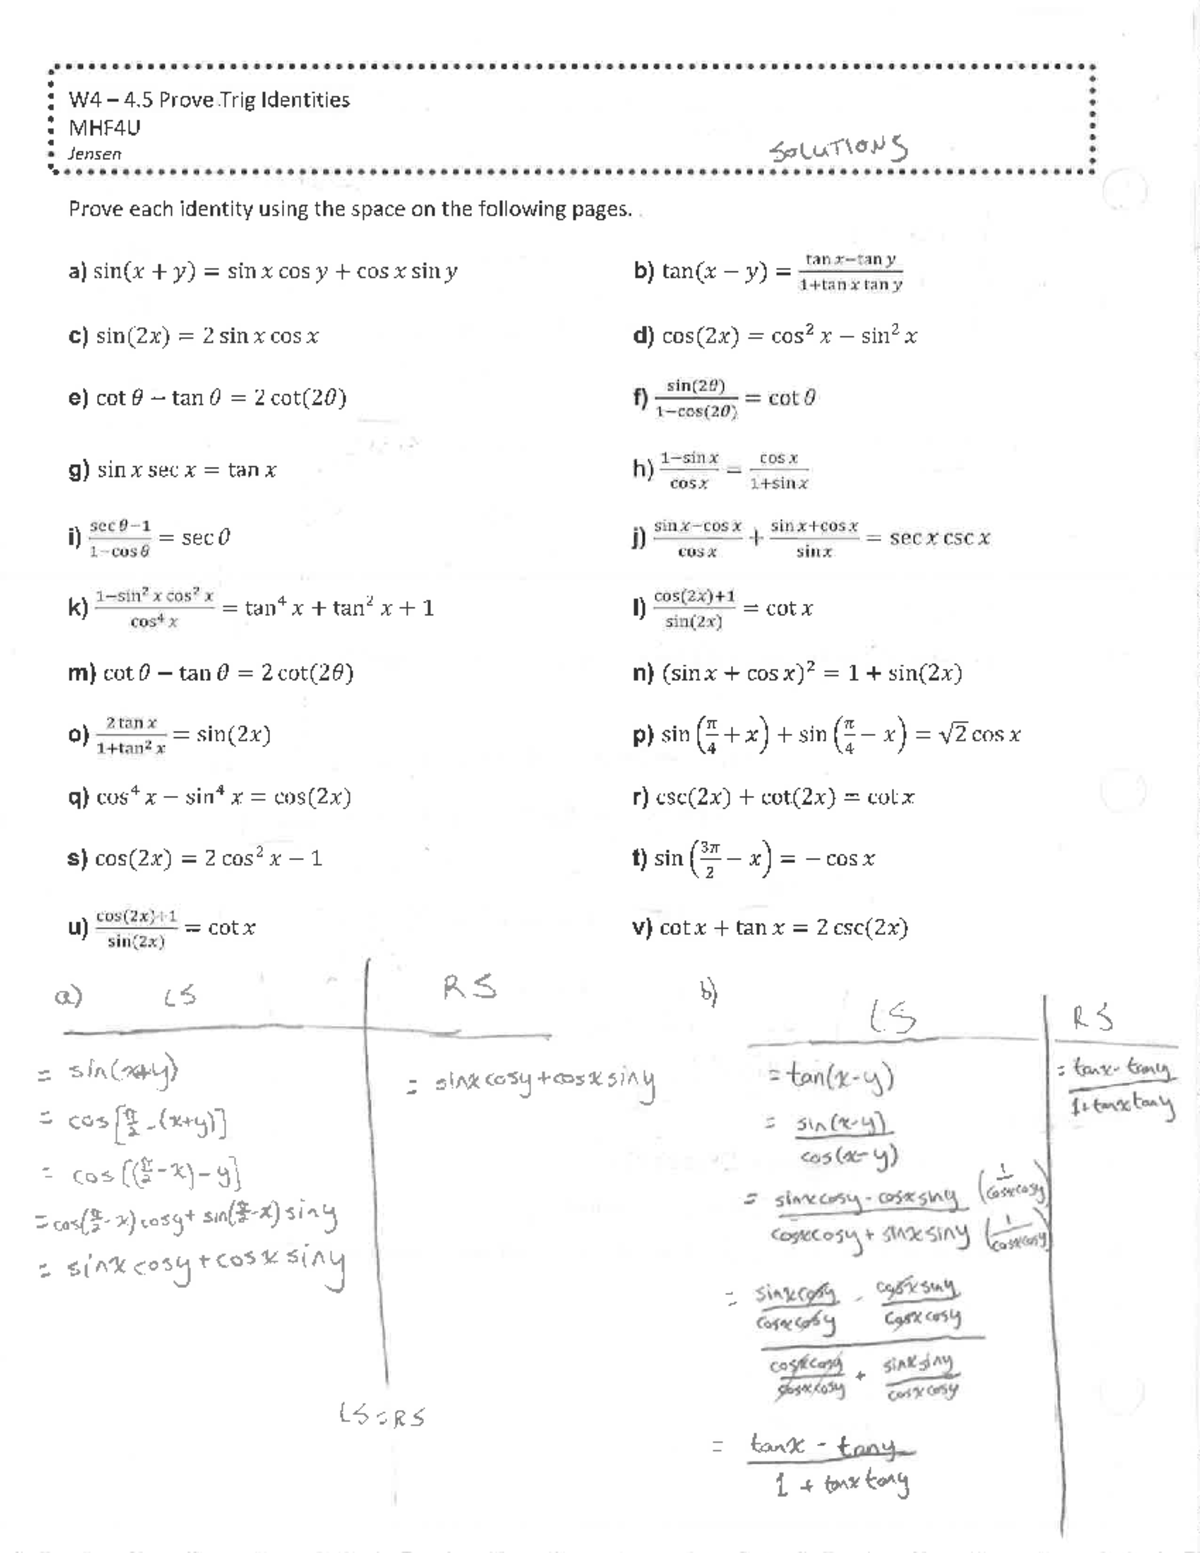 W4 – 4.5 Prove Trig Identities
MHF4U
Jensen
SOLUTIONS
Prove each identity using the space on the following pages.
a) sin(x + y) = sin x cos y + cos x sin y
b) tan(x − y) = (tan x−tan y)/(1+tan x tan y)
c) sin(2x) = 2 sin x cos x
d) cos(2x) = cos² x − sin² x
e) cot θ − tan θ = 2 cot(2θ)
f) sin(2θ)/(1−cos(2θ)) = cot θ
g) sin x sec x = tan x
h) (1−sin x)/cos x = cos x/(1+sin x)
i) (sec θ−1)/(1−cos θ) = sec θ
j) (sin x−cos x)/cos x + (sin x+cos x)/sin x = sec x csc x
k) (1−sin² x cos² x)/cos⁴ x = tan⁴ x + tan² x + 1
l) (cos(2x)+1)/sin(2x) = cot x
m) cot θ − tan θ = 2 cot(2θ)
n) (sin x + cos x)² = 1 + sin(2x)
o) 2 tan x/(1+tan² x) = sin(2x)
p) sin (π/4 + x) + sin (π/4 − x) = √2 cos x
q) cos⁴ x − sin⁴ x = cos(2x)
r) csc(2x) + cot(2x) = cot x
s) cos(2x) = 2 cos² x − 1
t) sin (3π/2 − x) = − cos x
u) (cos(2x)+1)/sin(2x) = cot x
v) cot x + tan x = 2 csc(2x)
a) LS RS
= sin(x+y)
= sinxcosy+cosxsiny
= cos[π/2-(x+y)]
= cos[(π/2-x)-y]
= cos(π/2-x)cosy+sin(π/2-x)siny
= sinxcosy+cosxsiny
LS=RS
b) LS RS
= tan(x-y)
= (tanx-tany)/(1+tanxtany)
= sin(x-y)/cos(x-y)
= (sinxcosy-cosxsiny (1/cosxcosy))/(cosxcosy+sinxsiny (1/cosxcosy))
= (sinxcosy/cosxcosy - cosxsiny/cosxcosy)/(cosxcosy/cosxcosy + sinxsiny/cosxcosy)
= (tanx-tany)/(1+tanxtany)